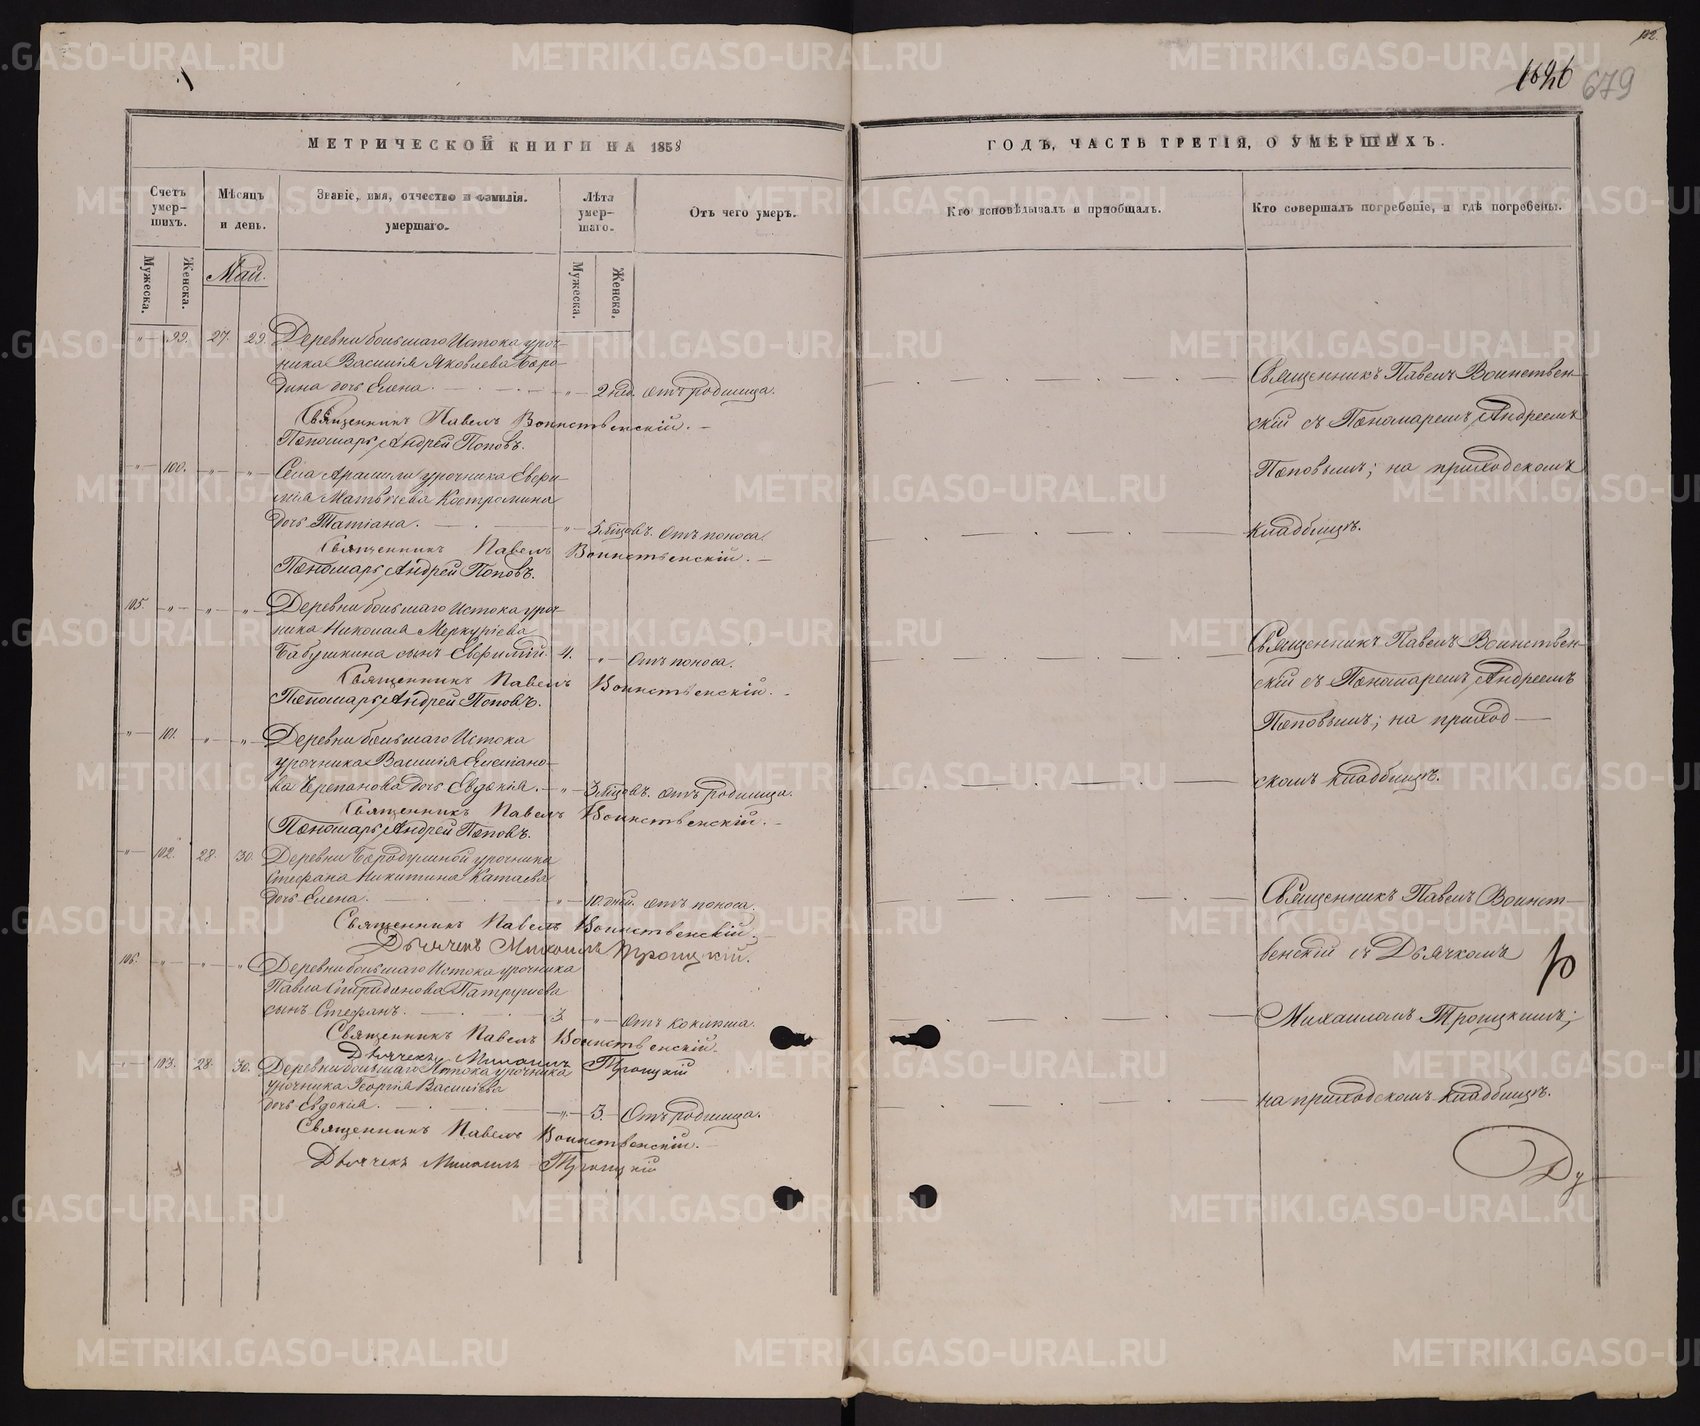 102.
1626
679
МЕТРИЧЕСКОЙ КНИГИ НА 1858
ГОДЪ, ЧАСТЬ ТРЕТІЯ, О УМЕРШИХЪ.
Счетъ умер-шихъ.
Мѣсяцъ и день.
Званіе, имя, отчество и фамилія. умершаго.
Лѣта умер-шаго.
Отъ чего умеръ.
Кто исповѣдывалъ и пріобщалъ.
Кто совершалъ погребеніе, и гдѣ погребены.
Мужеска.
Женска.
Май.
Мужеска.
Женска.
" 99. 27. 29. Деревни большаго Истока уроч-
ника Василія Яковлева Боро-
дина дочь Елена. " 2 нед. отъ родимца.
Священникъ Павелъ Воинственскій.
Пономарь Андрей Поповъ.
" 100. " " Села Арамили урочника Евфи-
мія Матвѣева Костромина
дочь Татіана. " 5 мѣцовъ. отъ поноса.
Священникъ Павелъ Воинственскій.
Пономарь Андрей Поповъ.
Священникъ Павелъ Воинствен-
скій съ Пономаремъ Андреемъ
Поповымъ; на приходскомъ
кладбищѣ.
105. " " " Деревни большаго Истока уроч-
ника Николая Меркуріева
Бабушкина сынъ Евфимій. 4. " отъ поноса.
Священникъ Павелъ Воинственскій.
Пономарь Андрей Поповъ.
" 101. " " Деревни большаго Истока
урочника Василія Емеліано-
ва Черепанова дочь Евдокія. " 3 мѣцовъ. отъ родимца.
Священникъ Павелъ Воинственскій.
Пономарь Андрей Поповъ.
Священникъ Павелъ Воинствен-
скій съ Пономаремъ Андреемъ
Поповымъ; на приход-
скомъ кладбищѣ.
" 102. 28. 30. Деревни Бородулиной урочника
Стефана Никитина Катаева
дочь Елена. " 10 дней. отъ поноса.
Священникъ Павелъ Воинственскій.
Дьячекъ Михаилъ Троицкій.
106. " " " Деревни большаго Истока урочника
Павла Спиридонова Патрушева
сынъ Стефанъ. 3. " отъ коклюша.
Священникъ Павелъ Воинственскій.
Дьячекъ Михаилъ Троицкій
" 103. 28. 30. Деревни большаго Истока урочника
урочника Георгія Васильева
дочь Евдокія. " 3. Отъ родимца.
Священникъ Павелъ Воинственскій.
Дьячекъ Михаилъ Троицкій
Священникъ Павелъ Воинст-
венскій съ Дьячкомъ
Михаиломъ Троицкимъ;
на приходскомъ кладбищѣ.
Ду
METRIKI.GASO-URAL.RU